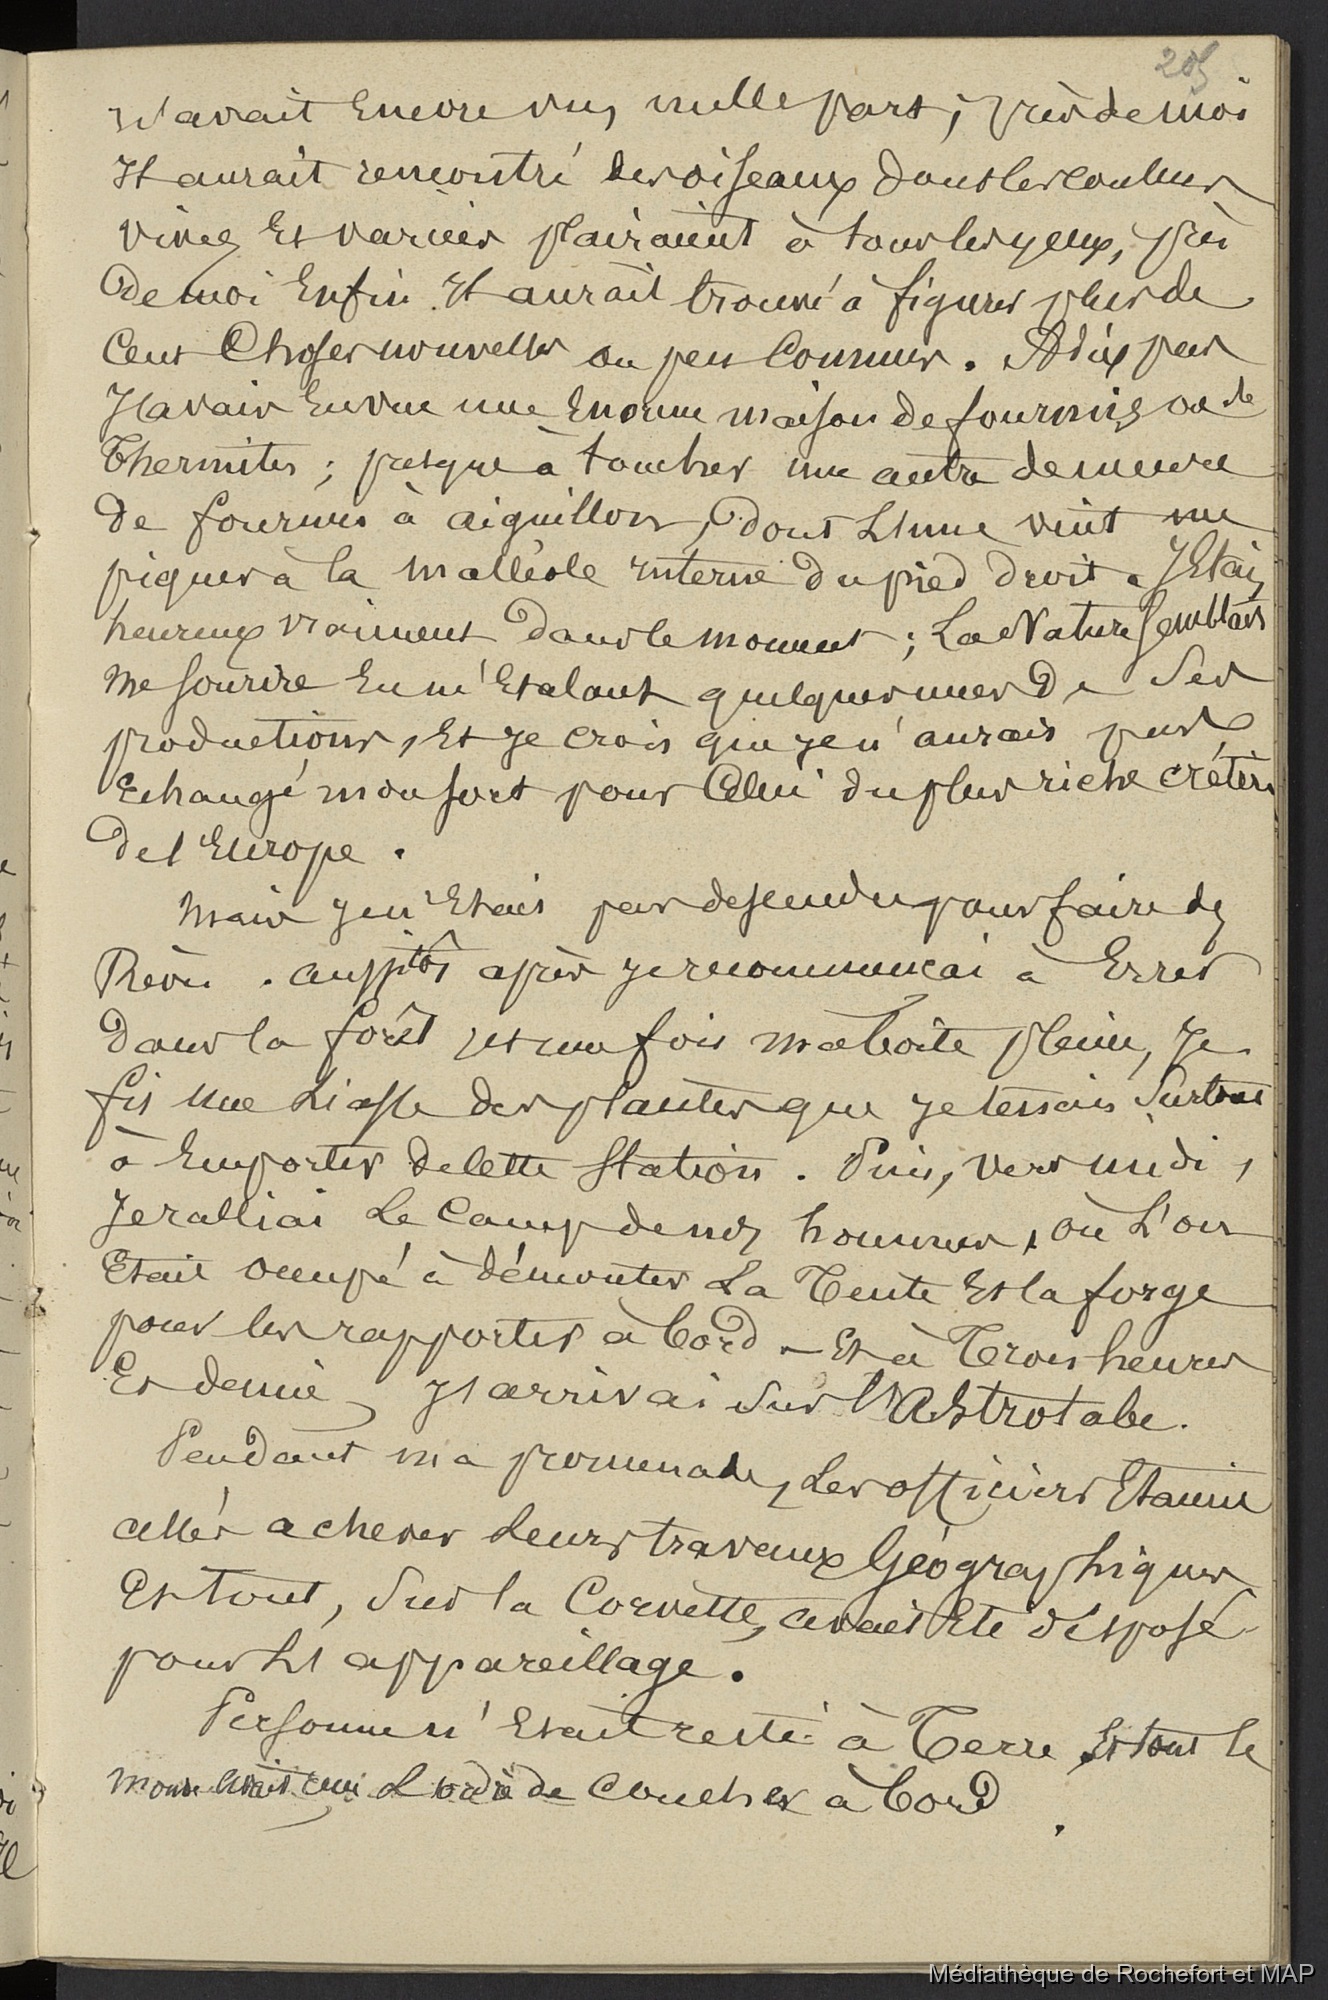 205
n'avait encore vus nulle part ; près de moi
Il aurait rencontré des oiseaux dont les couleurs
vives Et variées plairaient à tous les yeux, près
De moi Enfin Il aurait trouvé à figurer plus de
Cent Choses nouvelles ou peu Connues. A dix pas
J'avais En vue une Enorme maison de fourmis ou de
Thermites ; presque à toucher une autre demeure
De fourmis à aiguillons, dont L'une vint me
piquer à la malléole interne du pied droit. J'Etais
heureux vraiment Dans le moment ; La Nature Semblait
Me Sourire En m'Etalant quelques unes De Ses
productions, Et Je crois que Je n'aurais pas
Echangé mon sort pour Celui du plus riche crétin
De l'Europe.
Mais Je n'Etais pas descendu pour faire des
Rêves. aussitôt après Je recommençai à Errer
Dans la forêt Et une fois ma boîte pleine, Je
fis Une Liasse des plantes que Je tenais Surtout
à Emporter de Cette Station. Puis, vers midi,
Je ralliai Le Camp de nos hommes, où L'on
Etait occupé à démonter La Tente Et la forge
pour les rapporter à bord. Et à Trois heures
Et demie J'arrivai Sur l'Astrolabe.
Pendant ma promenade, Les officiers Etaient
allés achever Leurs travaux Géographiques
Et tout, Sur la Corvette, avait Eté disposé
pour L'appareillage.
Personne n'Etait resté à Terre Et tout le
monde avait eu L'ordre de Coucher à bord.
Médiathèque de Rochefort et MAP